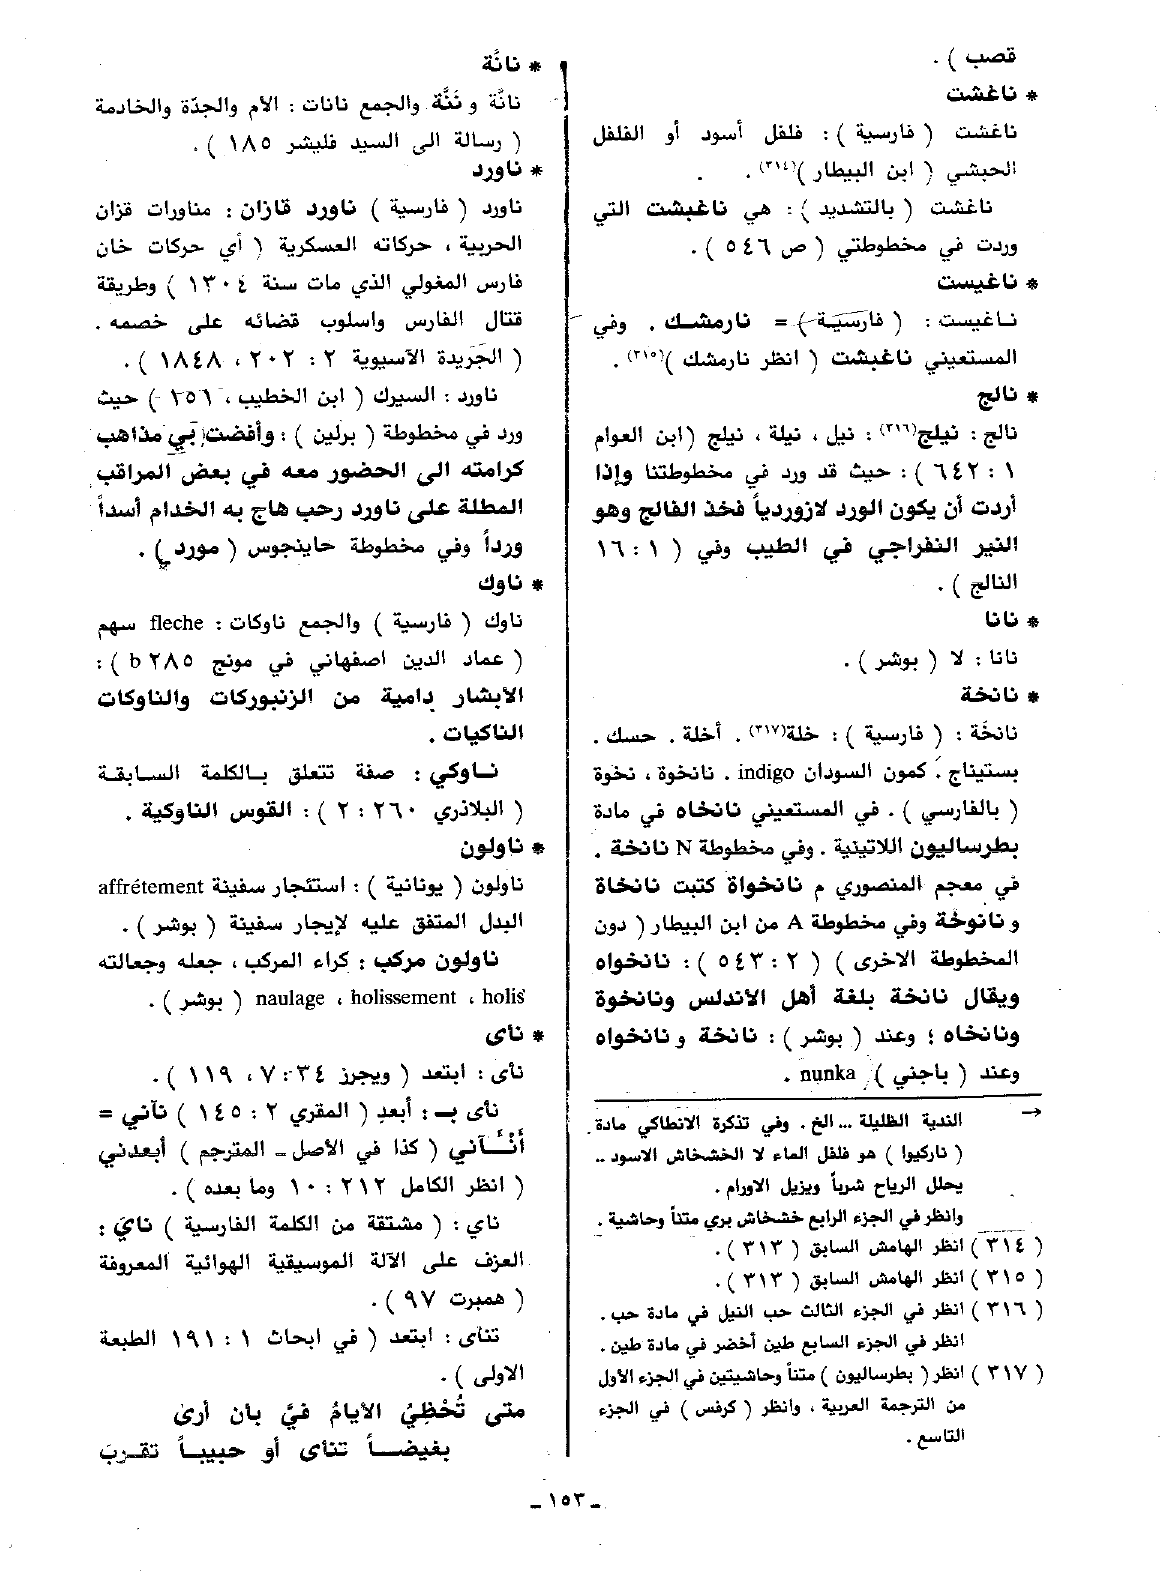 قصب ) .
* ناغشت
ناغشت ( فارسية ) : فلفل أسود أو الفلفل
الحبشي ( ابن البيطار )(٣١٤) .
ناغشت ( بالتشديد ) : هي ناغبشت التي
وردت في مخطوطتي ( ص ٥٤٦ ) .
* ناغيست
ناغيست : ( فارسية ) = نارمشك . وفي
المستعيني ناغبشت ( انظر نارمشك )(٣١٥) .
* نالج
نالج : نيلج(٣١٦) : نيل ، نيلة ، نيلج (ابن العوام
١ : ٦٤٢ ) : حيث قد ورد في مخطوطتنا وإذا
أردت أن يكون الورد لازوردياً فخذ الفالج وهو
النير النفراجي في الطيب وفي ( ١ : ١٦
النالج ) .
* نانا
نانا : لا ( بوشر ) .
* نانخة
نانخَة : ( فارسية ) : خلة(٣١٧) . أخلة . حسك .
بستيناج . كمون السودان indigo . نانخوة ، نخوة
( بالفارسي ) . في المستعيني نانخاه في مادة
بطرساليون اللاتينية . وفي مخطوطة N نانخة .
في معجم المنصوري م نانخواة كتبت نانخاة
و نانوخة وفي مخطوطة A من ابن البيطار ( دون
المخطوطة الاخرى ) ( ٢ : ٥٤٣ ) : نانخواه
ويقال نانخة بلغة أهل الاندلس ونانخوة
ونانخاه ؛ وعند ( بوشر ) : نانخة و نانخواه
وعند ( باجني ) nunka .
→ الندية الظليلة ... الخ . وفي تذكرة الانطاكي مادة
( ناركيوا ) هو فلفل الماء لا الخشخاش الاسود ..
يحلل الرياح شرباً ويزيل الاورام .
وانظر في الجزء الرابع خشخاش بري متناً وحاشية .
( ٣١٤ ) انظر الهامش السابق ( ٣١٣ ) .
( ٣١٥ ) انظر الهامش السابق ( ٣١٣ ) .
( ٣١٦ ) انظر في الجزء الثالث حب النيل في مادة حب .
انظر في الجزء السابع طين أخضر في مادة طين .
( ٣١٧ ) انظر ( بطرساليون ) متناً وحاشيتين في الجزء الأول
من الترجمة العربية ، وانظر ( كرفس ) في الجزء
التاسع .
* نانَّة
نانَّة و نَنَّة والجمع نانات : الأم والجدّة والخادمة
( رسالة الى السيد فليشر ١٨٥ ) .
* ناورد
ناورد ( فارسية ) ناورد قازان : مناورات قزان
الحربية ، حركاته العسكرية ( أي حركات خان
فارس المغولي الذي مات سنة ١٣٠٤ ) وطريقة
قتال الفارس واسلوب قضائه على خصمه .
( الجَريدة الآسيوية ٢ : ٢٠٢ ، ١٨٤٨ ) .
ناورد : السيرك ( ابن الخطيب ، ٢٥٦ ) حيث
ورد في مخطوطة ( برلين ) : وأفضت بي مذاهب
كرامته الى الحضور معه في بعض المراقب
المطلة على ناورد رحب هاج به الخدام أسداً
ورداً وفي مخطوطة حاينجوس ( مورد ) .
* ناوك
ناوك ( فارسية ) والجمع ناوكات : fleche سهم
( عماد الدين اصفهاني في مونج ٢٨٥ b ) :
الأبشار دامية من الزنبوركات والناوكات
الناكيات .
ناوكي : صفة تتعلق بالكلمة السابقة
( البلاذري ٢٦٠ : ٢ ) : القوس الناوكية .
* ناولون
ناولون ( يونانية ) : استئجار سفينة affrétement
البدل المتفق عليه لإيجار سفينة ( بوشر ) .
ناولون مركب : كراء المركب ، جعله وجعالته
holis ، holissement ، naulage ( بوشر ) .
* نأى
نأى : ابتعد ( ويجرز ٣٤ : ٧ ، ١١٩ ) .
نأى بـ : أبعد ( المقري ٢ : ١٤٥ ) نآني =
أَنْـُآني ( كذا في الأصل ـ المترجم ) أبعدني
( انظر الكامل ٢١٢ : ١٠ وما بعده ) .
ناي : ( مشتقة من الكلمة الفارسية ) نايَ :
العزف على الآلة الموسيقية الهوائية المعروفة
( همبرت ٩٧ ) .
تنأى : ابتعد ( في ابحاث ١ : ١٩١ الطبعة
الاولى ) .
متى تُخْطِيْ الأيامُ فيَّ بان أرى
بغيضاً تنأى أو حبيباً تقرب
ـ ١٥٣ ـ